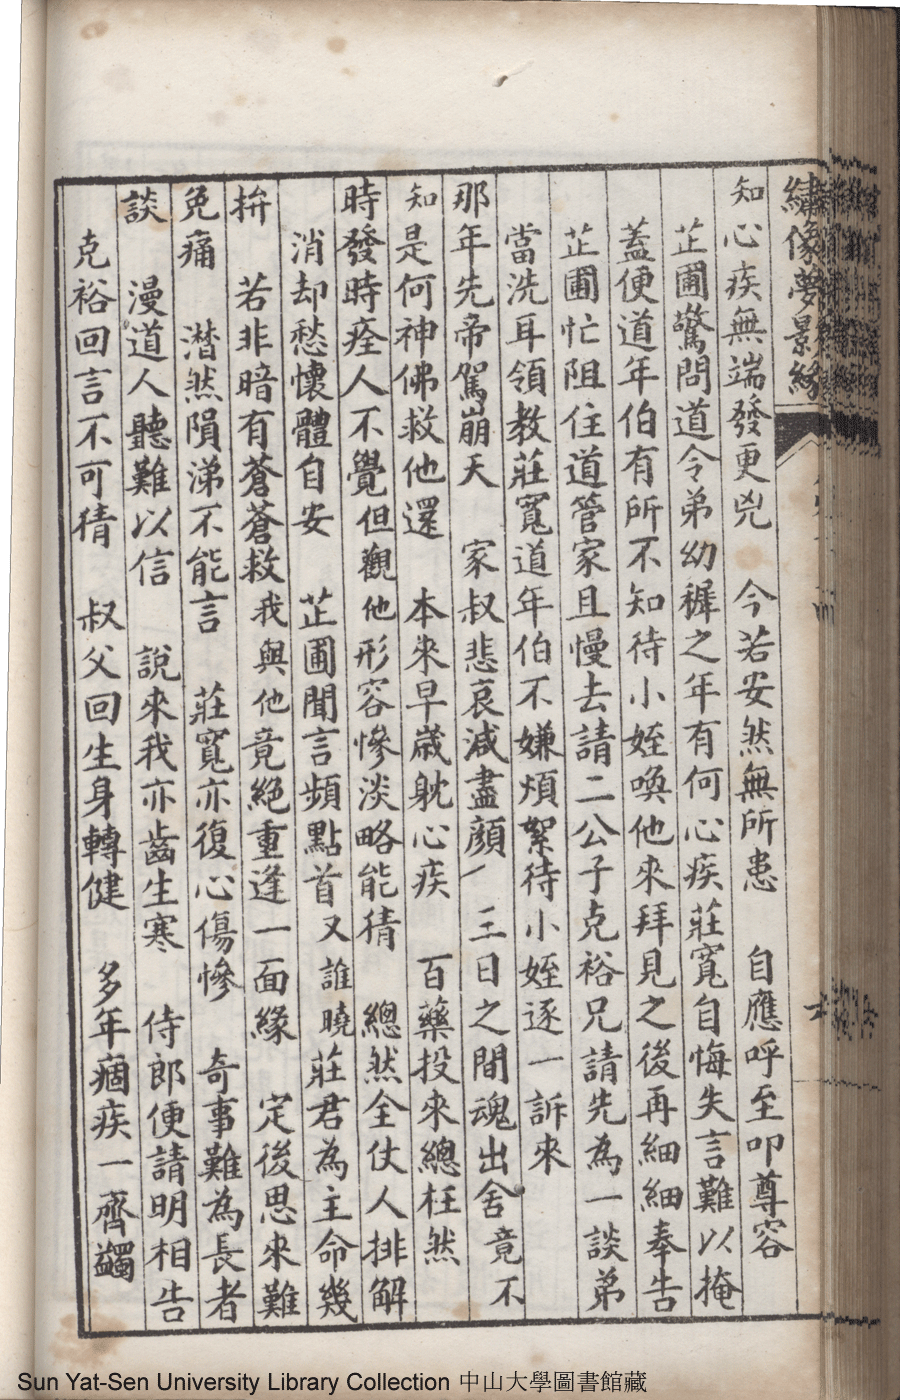 繡像夢景緣
知心疾無端發更兇　今若安然無所患　自應呼至叩尊容
芷圃驚問道令弟幼穉之年有何心疾莊寬自悔失言難以掩
蓋便道年伯有所不知待小姪喚他來拜見之後再細細奉告
芷圃忙阻住道管家且慢去請二公子克裕兄請先為一談弟
當洗耳領教莊寬道年伯不嫌煩絮待小姪逐一訴來
那年先帝駕崩天　家叔悲哀減盡顏　三日之間魂出舍竟不
知是何神佛救他還　本來早歲躭心疾　百藥投來總枉然
時發時痊人不覺但觀他形容慘淡略能猜　總然全仗人排解
消却愁懷體自安　芷圃聞言頻點首又誰曉莊君為主命幾
拚　若非暗有蒼蒼救我與他竟絕重逢一面緣　定後思來難
免痛　潸然隕涕不能言　莊寬亦復心傷慘　奇事難為長者
談　漫道人聽難以信　說來我亦齒生寒　侍郎便請明相告
克裕回言不可猜　叔父回生身轉健　多年痼疾一齊蠲
Sun Yat-Sen University Library Collection 中山大學圖書館藏